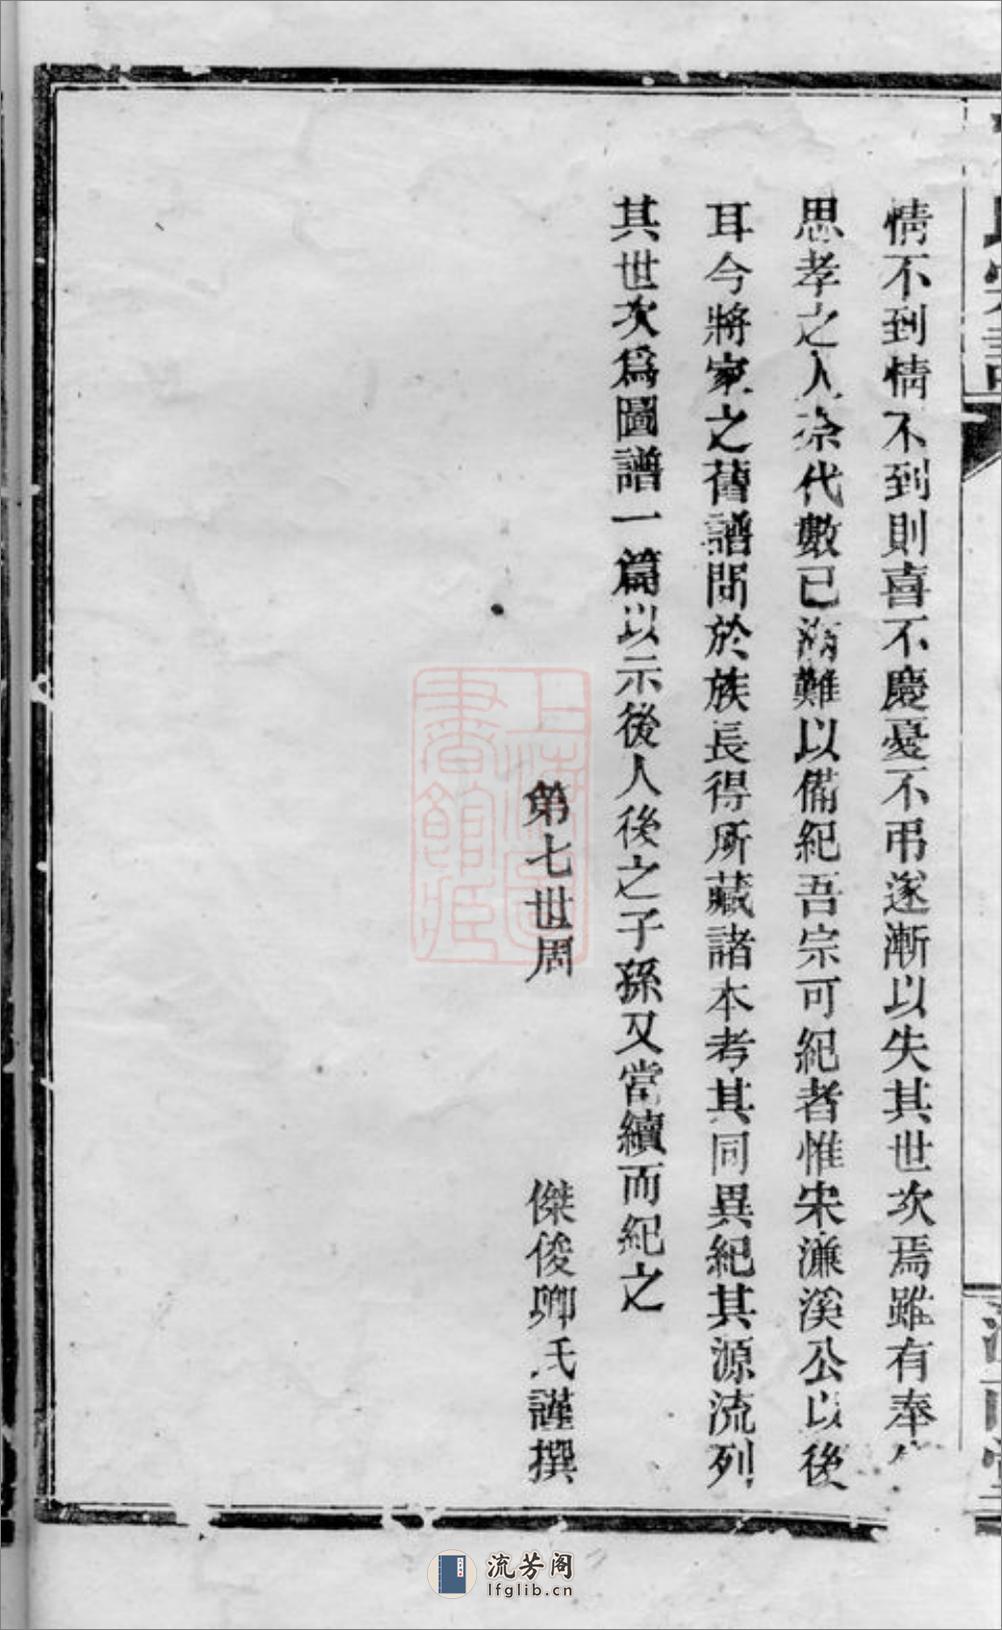 情不到情不到則喜不慶憂不弔遂漸以失其世次焉雖有奉
思孝之人奈代數已湮難以備紀吾宗可紀者惟宋濂溪公以後
耳今將家之舊譜問於族長得所藏諸本考其同異紀其源流列
其世次為圖譜一篇以示後人後之子孫又當續而紀之
第七世周
傑俊卿氏謹撰
上海圖書館藏
流芳阁
lfglib.cn